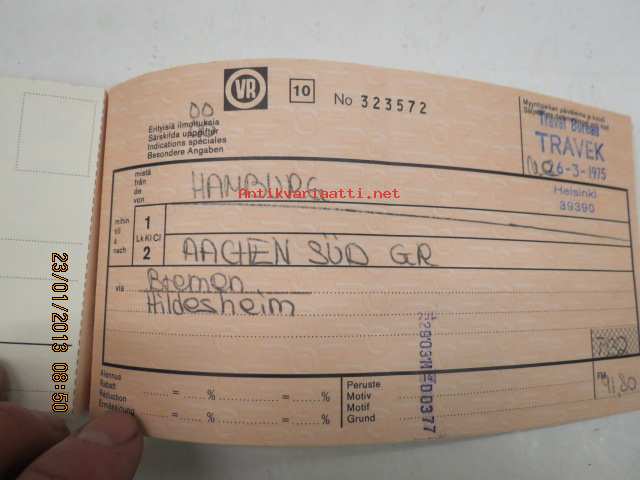 VR
10
No 323572
00
Erityisiä ilmoituksia
Särskilda uppgifter
Indications spéciales
Besondere Angaben
Travel Bureau
TRAVEK
26-3-1975
Helsinki
39390
mistä
från
de
von
HAMBURG
Antikvariaatti.net
mihin
till
à
nach
1
Lk Kl Cl
2
AACHEN SÜD GR
via
Bremen
Hildesheim
Alennus
Rabatt
Réduction
Ermässigung
= % = % = %
Peruste
Motiv
Motif
Grund
FM
91,80
23/01/2013 08:50